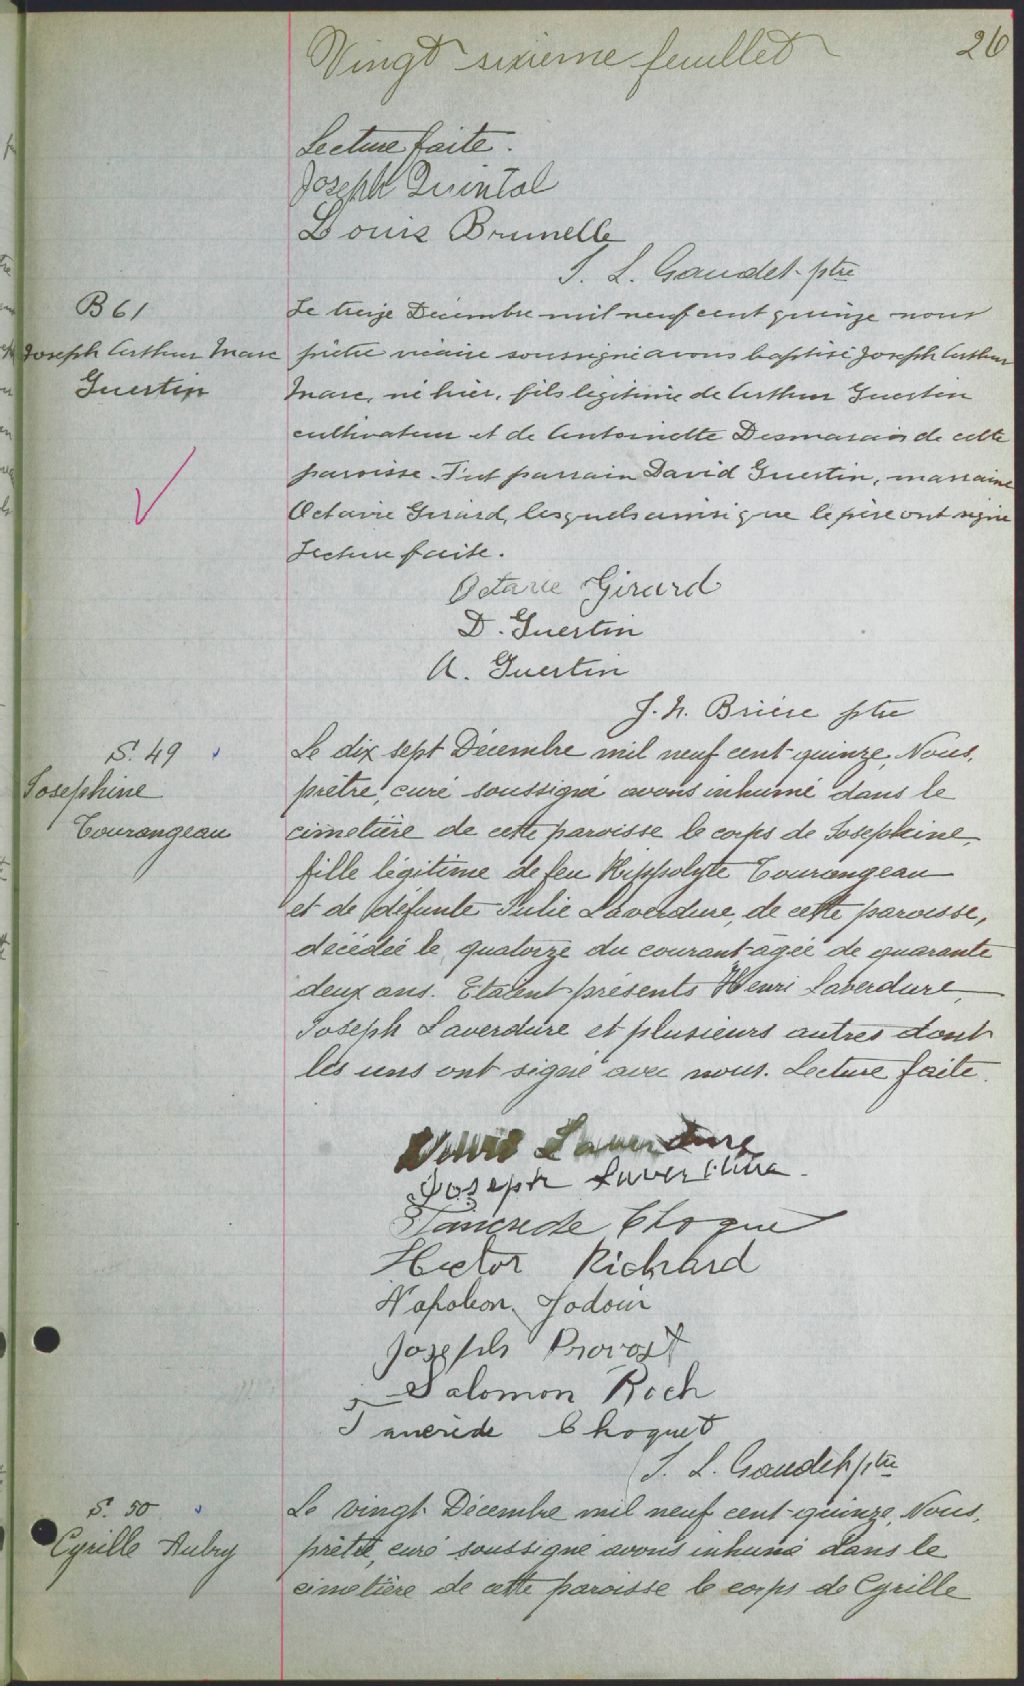 Vingt sixième feuillet
26
Lecture faite.
Joseph Quintal
Louis Brunelle
J. L. Gaudet ptre
B 61
Joseph Arthur Marc
Guertin
Le treize Décembre mil neuf cent quinze nous
prêtre vicaire soussigné avons baptisé Joseph Arthur
Marc, né hier, fils légitime de Arthur Guertin
cultivateur et de Antoinette Desmarais de cette
paroisse. Fut parrain David Guertin, marraine
Octavie Girard, lesquels ainsi que le père ont signé
Lecture faite.
Octavie Girard
D. Guertin
A. Guertin
J. H. Brière ptre
S. 49
Josephine
Tourangeau
Le dix sept Décembre mil neuf cent quinze, Nous,
prêtre, curé soussigné avons inhumé dans le
cimetière de cette paroisse le corps de Josephine,
fille légitime de feu Hippolyte Tourangeau
et de défunte Julie Laverdure, de cette paroisse,
décédée le quatorze du courant âgée de quarante
deux ans. Etaient présents Henri Laverdure,
Joseph Laverdure et plusieurs autres dont
les uns ont signé avec nous. Lecture faite.
Henri Laverdure
Joseph Laverdure
Tancrede Choquet
Hector Richard
Napoleon Jodoin
Joseph Provost
Salomon Roch
Tancrède Choquet
J. L. Gaudet ptre
S. 50
Cyrille Aubry
Le vingt Décembre mil neuf cent quinze, Nous,
prêtre, curé soussigné avons inhumé dans le
cimetière de cette paroisse le corps de Cyrille